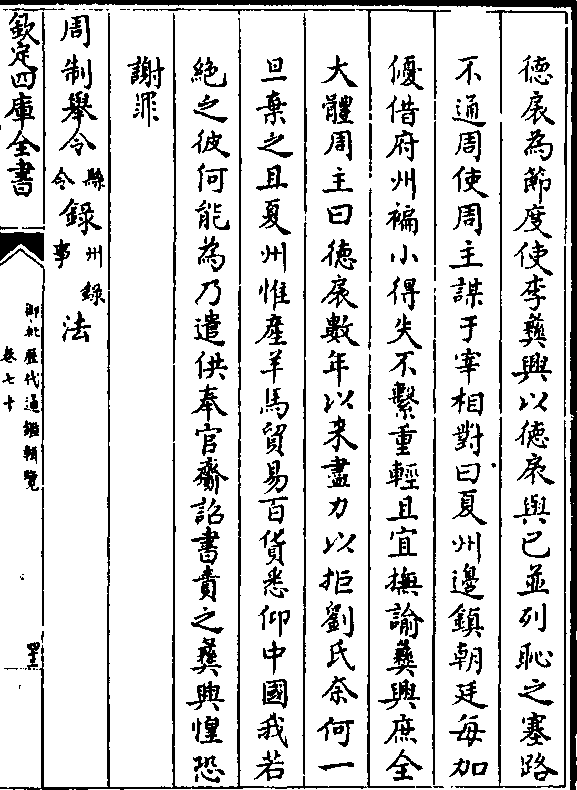 德扆為節度使李彝興以德扆與己並列恥之塞路
不通周使周主謀于宰相對曰夏州邊鎮朝廷每加
優借府州褊小得失不繫重輕且宜撫諭彝興庶全
大體周主曰德扆數年以来盡力以拒劉氏奈何一
旦棄之且夏州惟產羊馬貿易百貨悉仰中國我若
絶之彼何能為乃遣供奉官齎詔書責之彝興惶恐
謝罪
周制舉令縣令錄州錄事法
欽定四庫全書
御批歷代通鑑輯覽
卷七十